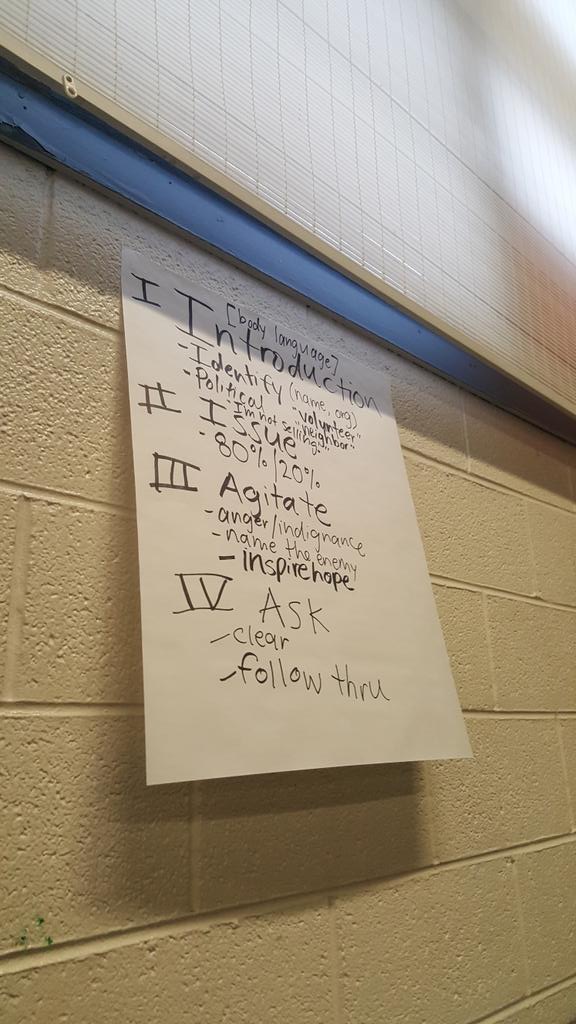 [body language]
I Introduction
- Identify (name, org)
- Political - "volunteer"
- "I'm not selling." "neighbor"
II Issue
- 80%/20%
III Agitate
- anger/indignance
- name the enemy
- inspire hope
IV Ask
- clear
- follow thru